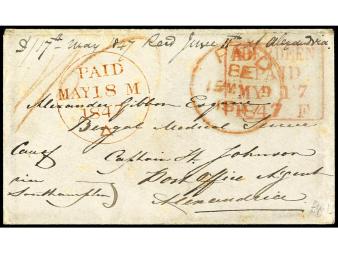 D/ 17th May 1847 Recd June 11th at Alexandria
PAID
MAY 18 M
184
ABERDEEN
PAID
MY 17
1847
F
PAID
Alexander Gibbon Esquire
Bengal Medical
Care of
Captain H. Johnson
Post Office Agent
Alexandria
via
Southampton